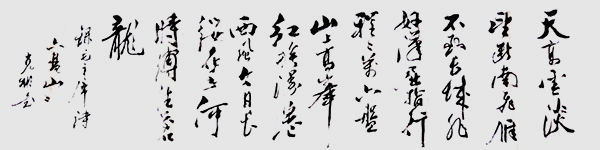 天高雲淡
望斷南飛雁
不到長城非
好漢屈指行
程二萬六盤
山上高峰
紅旗漫卷
西風今日長
纓在手何
時縛住蒼
龍
錄毛主席詩
六盤山